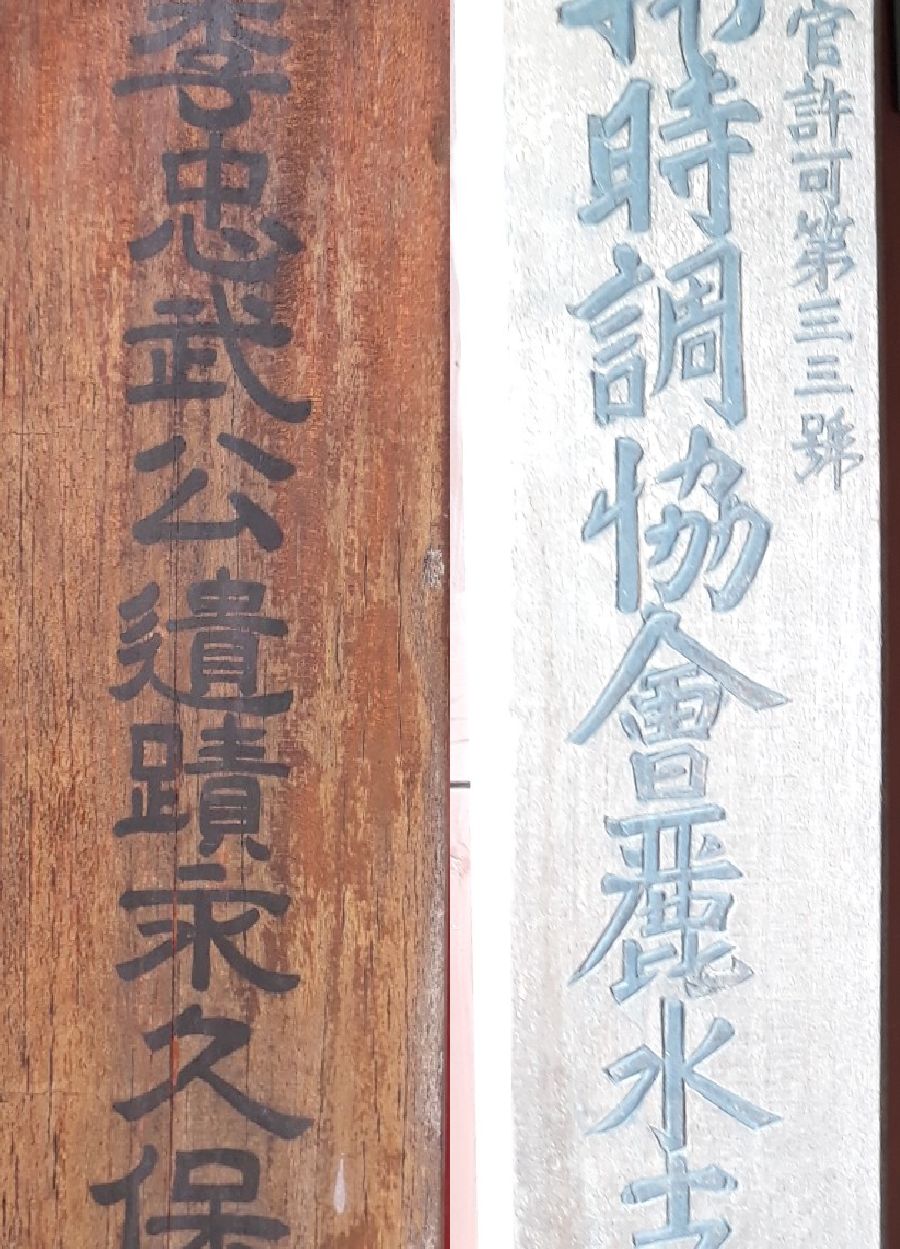 官許可第三三號
時調協會麗水支
李忠武公遺蹟永久保